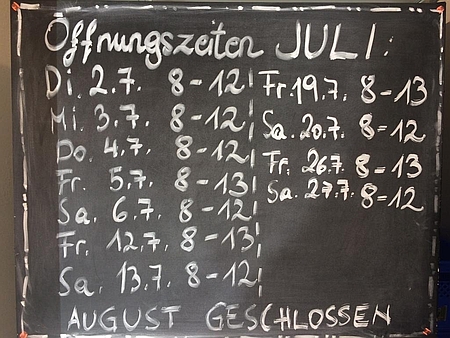 Öffnungszeiten JULI:
Di. 2.7. 8-12
Mi. 3.7. 8-12
Do. 4.7. 8-12
Fr. 5.7. 8-13
Sa. 6.7. 8-12
Fr. 12.7. 8-13
Sa. 13.7. 8-12
Fr. 19.7. 8-13
Sa. 20.7. 8-12
Fr. 26.7. 8-13
Sa. 27.7. 8-12
AUGUST GESCHLOSSEN